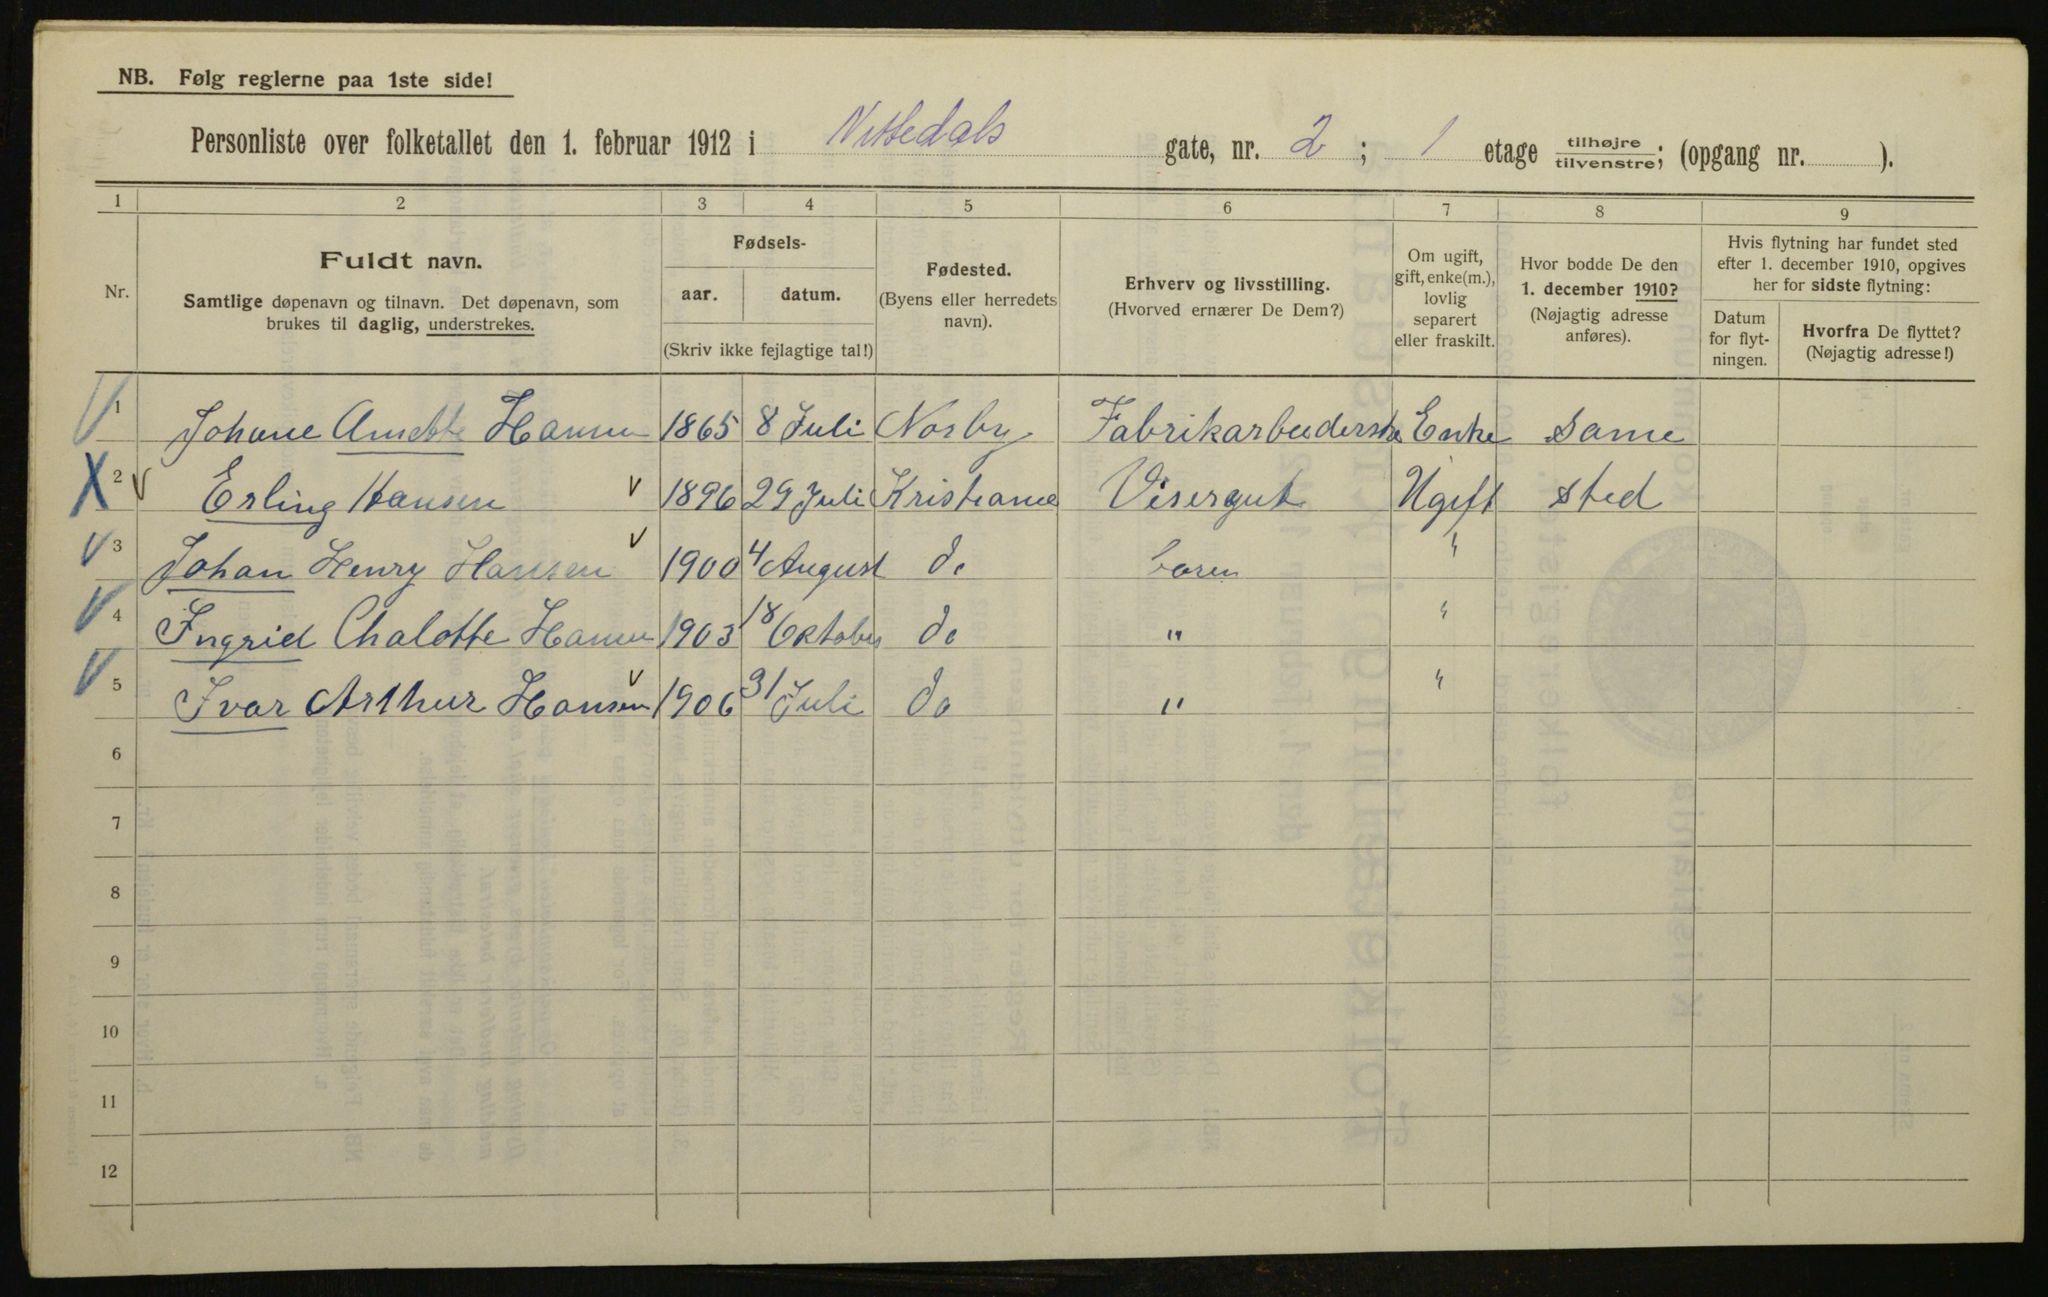 NB. Følg reglerne paa 1ste side!
Personliste over folketallet den 1. februar 1912 i Nittedals gate, nr. 2 ; 1 etage tilhøjre tilvenstre; (opgang nr. ).
1 2 3 4 5 6 7 8 9
Nr.
Fuldt navn.
Samtlige døpenavn og tilnavn. Det døpenavn, som
brukes til daglig, understrekes.
Fødsels-
aar. datum.
(Skriv ikke fejlagtige tal!)
Fødested.
(Byens eller herredets
navn).
Erhverv og livsstilling.
(Hvorved ernærer De Dem?)
Om ugift,
gift, enke(m.),
lovlig
separert
eller fraskilt.
Hvor bodde De den
1. december 1910?
(Nøjagtig adresse
anføres).
Hvis flytning har fundet sted
efter 1. december 1910, opgives
her for sidste flytning:
Datum
for flyt-
ningen.
Hvorfra De flyttet?
(Nøjagtig adresse!)
1 Johane Anette Hansen 1865 8 Juli Norby Fabrikarbeiderske Enke Same
2 Erling Hansen 1896 29 Juli Kristiania Visergut Ugift Sted
3 Johan Henry Hansen 1900 4 August do baren "
4 Ingrid Chalotte Hansen 1903 18 Oktober do " "
5 Ivar Arthur Hansen 1906 31 Juli do " "
6
7
8
9
10
11
12